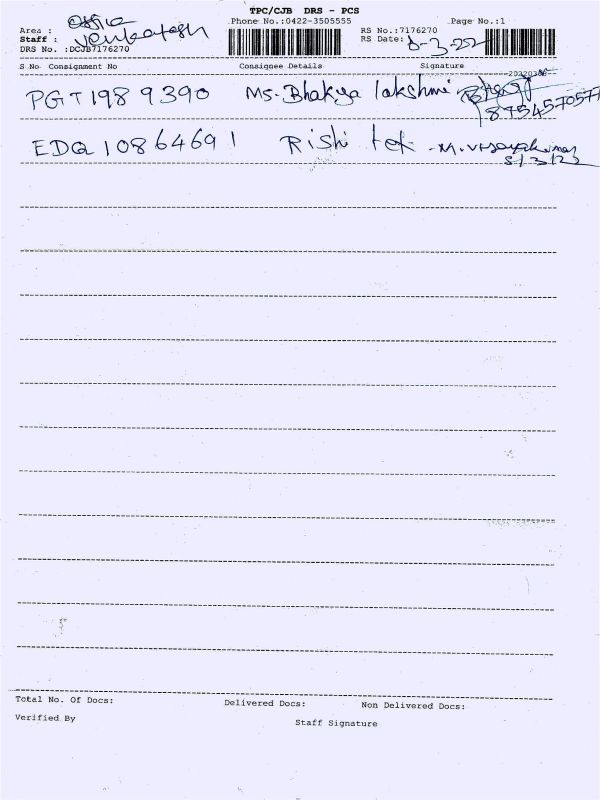 TPC/CJB DRS - PCS
Area : Office Phone No.:0422-3505555 Page No.:1
Staff : Venkatesh RS No.:7176270
DRS No. :DCJB7176270 RS Date:
S No Consignment No Consignee Details Signature
PGT198 9390 Ms. Bhakya lakshmi
8754570577
EDQ10864691 Rishi tek
Total No. Of Docs: Delivered Docs: Non Delivered Docs:
Verified By Staff Signature